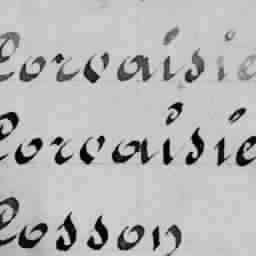 Corvaisie
Corvaisie
Cosson